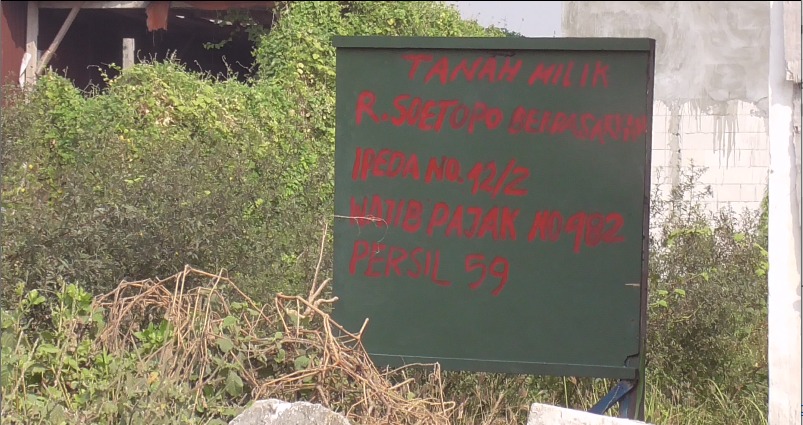 TANAH MILIK
R. SOETOPO BERDASARKAN
IPEDA NO. 42/2
WAJIB PAJAK NO 982
PERSIL 59